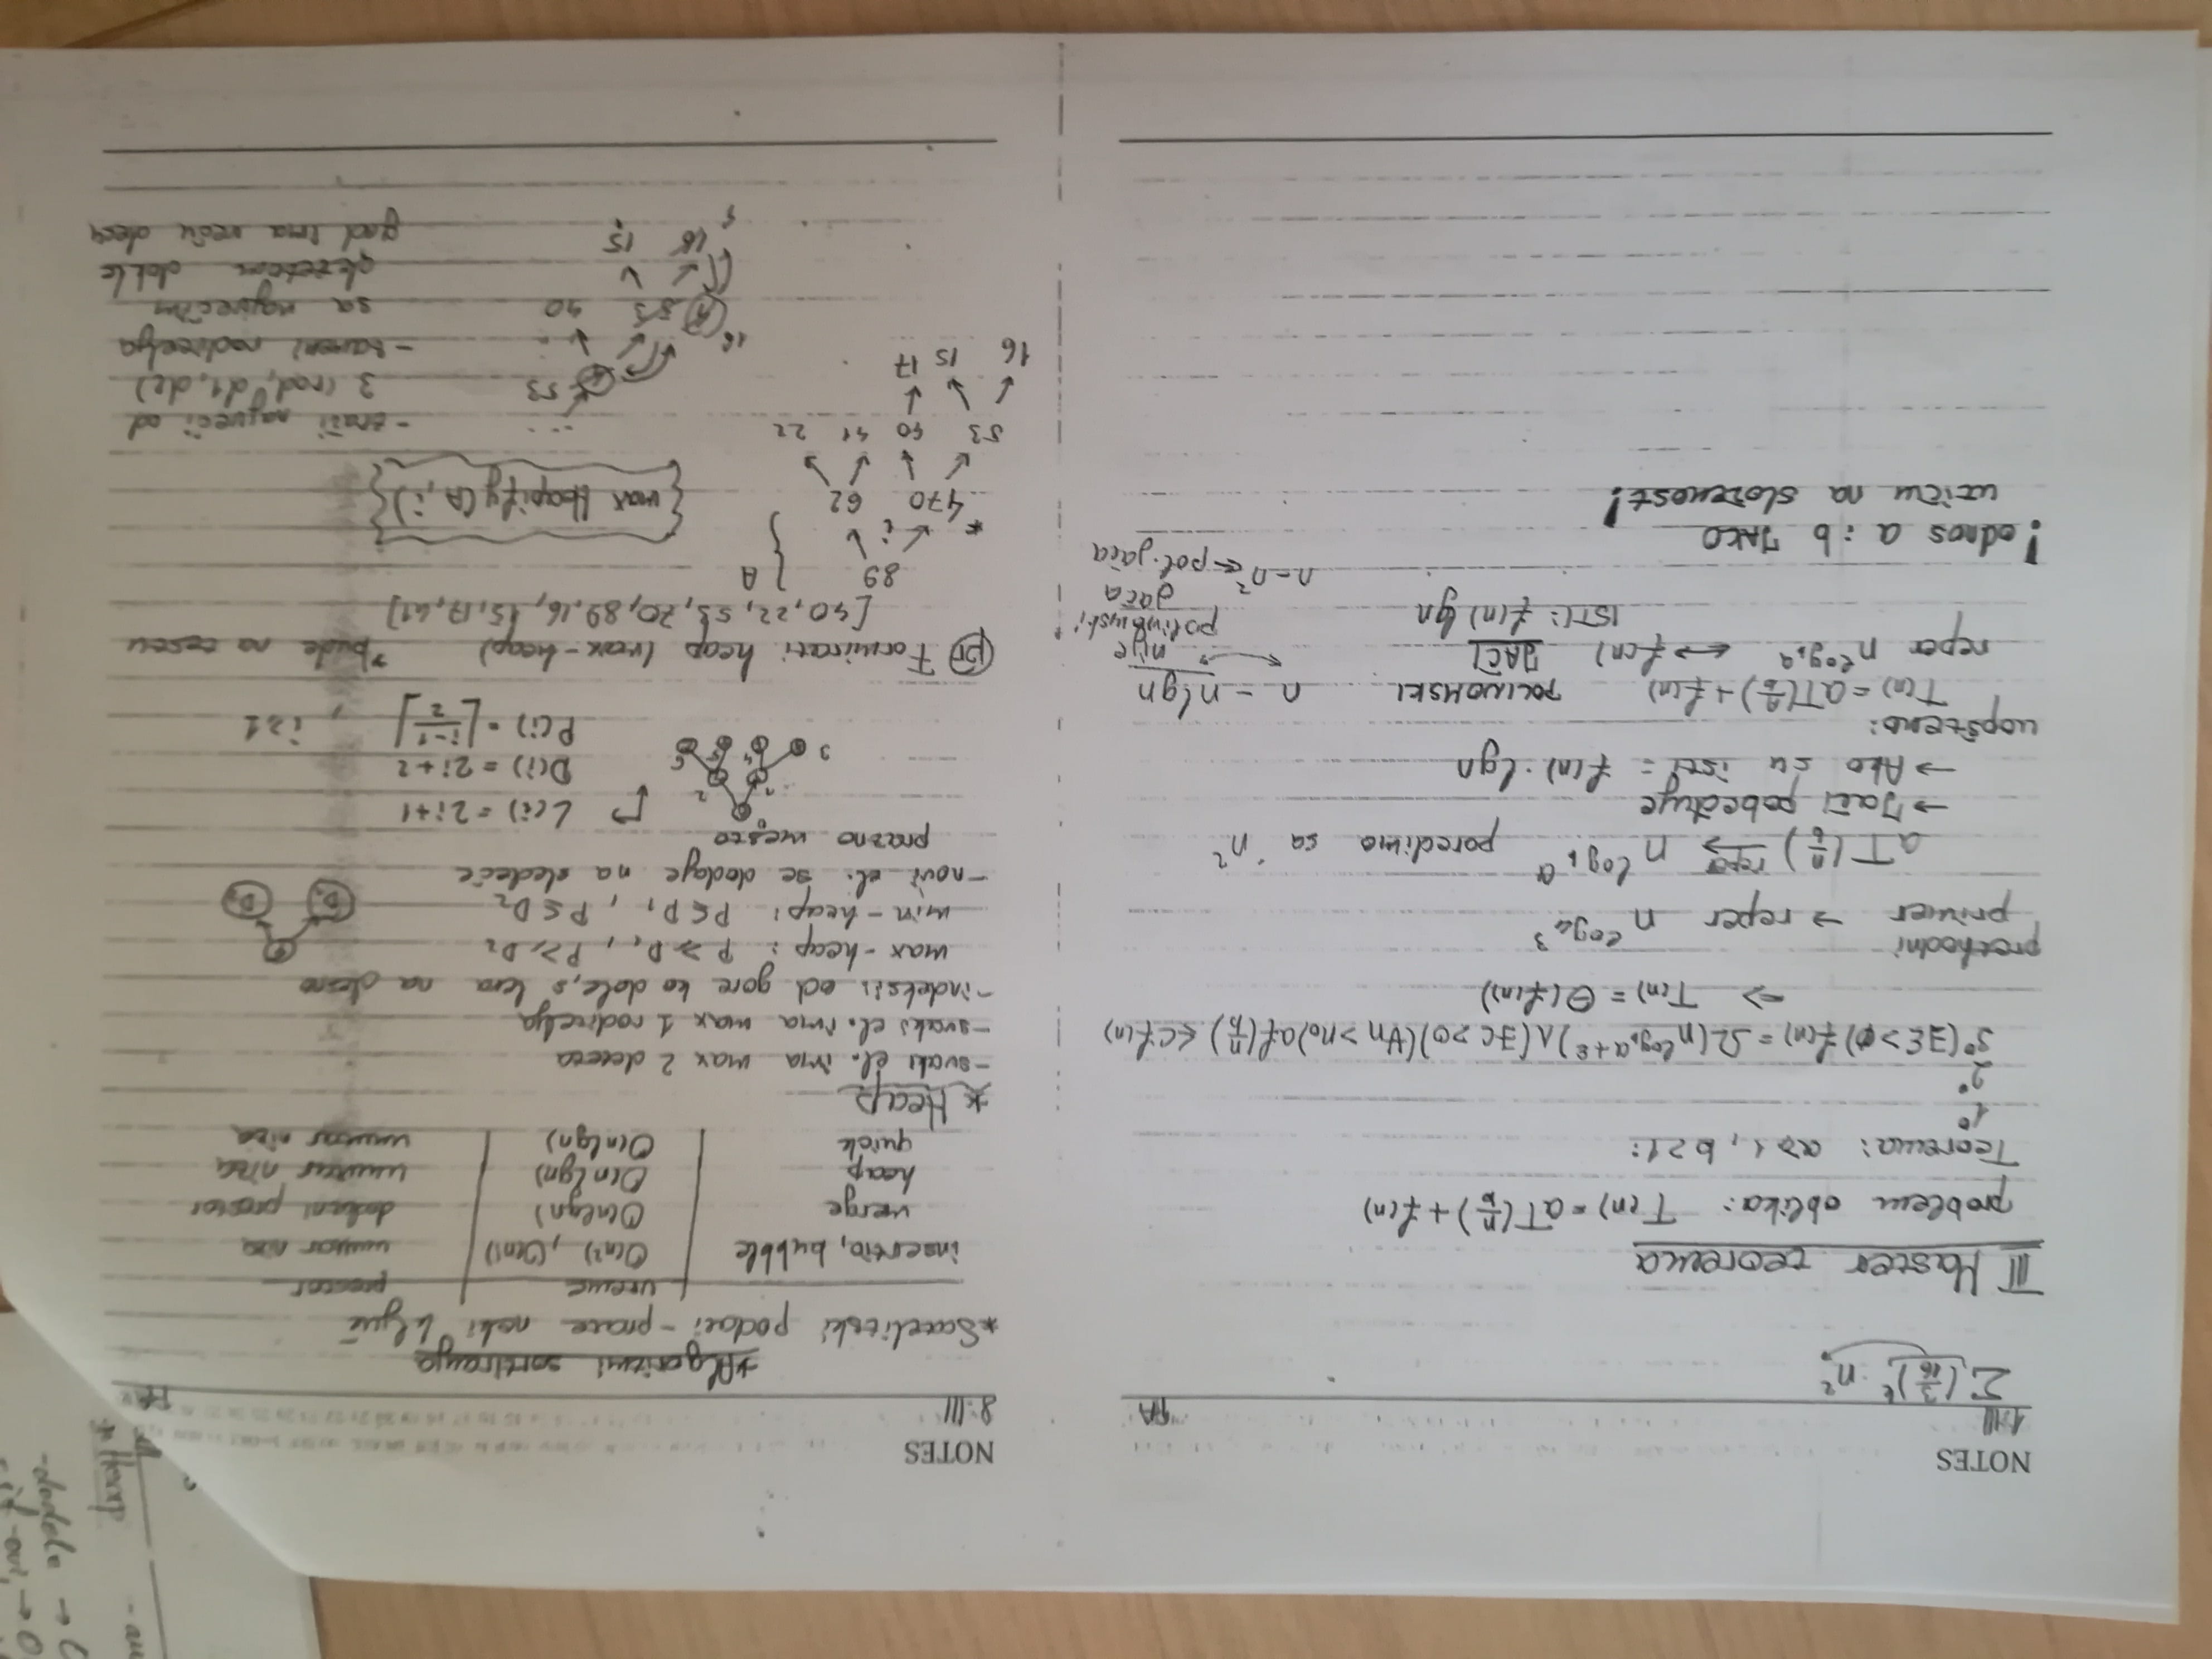 NOTES
1.III PA
Σ (3/16)^k · n²
III Master teorema
problem oblika: T(n) = aT(n/b) + f(n)
Teorema: a≥1, b≥1:
1°
2°
3° (∃ε>0) f(n) = Ω(n^(log_b a+ε)) ∧ (∃c>0)(∀n>n₀) af(n/b) ≤ cf(n)
=> T(n) = Θ(f(n))
prethodni
primer → reper n^(log₄3)
aT(n/b) reper→ n^(log_b a) poredimo sa n²
→ Jači pobeđuje
→ Ako su isti = f(n) · lgn
uopšteno:
T(n) = aT(n/b) + f(n) POLINOMSKI
reper n^(log_b a) ↔ f(n) JAČI
ISTI: f(n) lgn
n - nlgn
nije
polinomski
jača
n - n² ← pol. jača
! odnos a i b JAKO
utiču na složenost!
NOTES
8.III PA
*Algoritmi sortiranja
*Satelitski podaci - prate neki ključ
vreme prostor
insertio, bubble O(n²), O(n²) unutar niza
merge O(nlgn) dodatni prostor
heap O(nlgn) unutar niza
quick O(nlgn) unutar niza
* Heap
- svaki el. ima max 2 deteta
- svaki el. ima max 1 roditelja
- indeksi: od gore ko dole, s leva na desno
max-heap: P ≥ D₁, P ≥ D₂
min-heap: P ≤ D₁, P ≤ D₂
P
D₁ D₂
- novi el. se dodaje na sledeće
prazno mesto
0
1 2
3 4 5 6
L(i) = 2i+1
D(i) = 2i+2
P(i) = ⌊(i-1)/2⌋, i≥1
Pr Formirati heap (max-heap) *bude na testu
[40, 22, 53, 70, 89, 16, 15, 17, 41]
89 } A
* i
470 62
53 40 41 22
16 15 17
max Heapify(A, i)
...
- traži najveći od
3 (rod, d1, d2)
- zameni roditelja
sa najvećim
detetom dokle
god ima veću decu
53
16 53 40
16 15